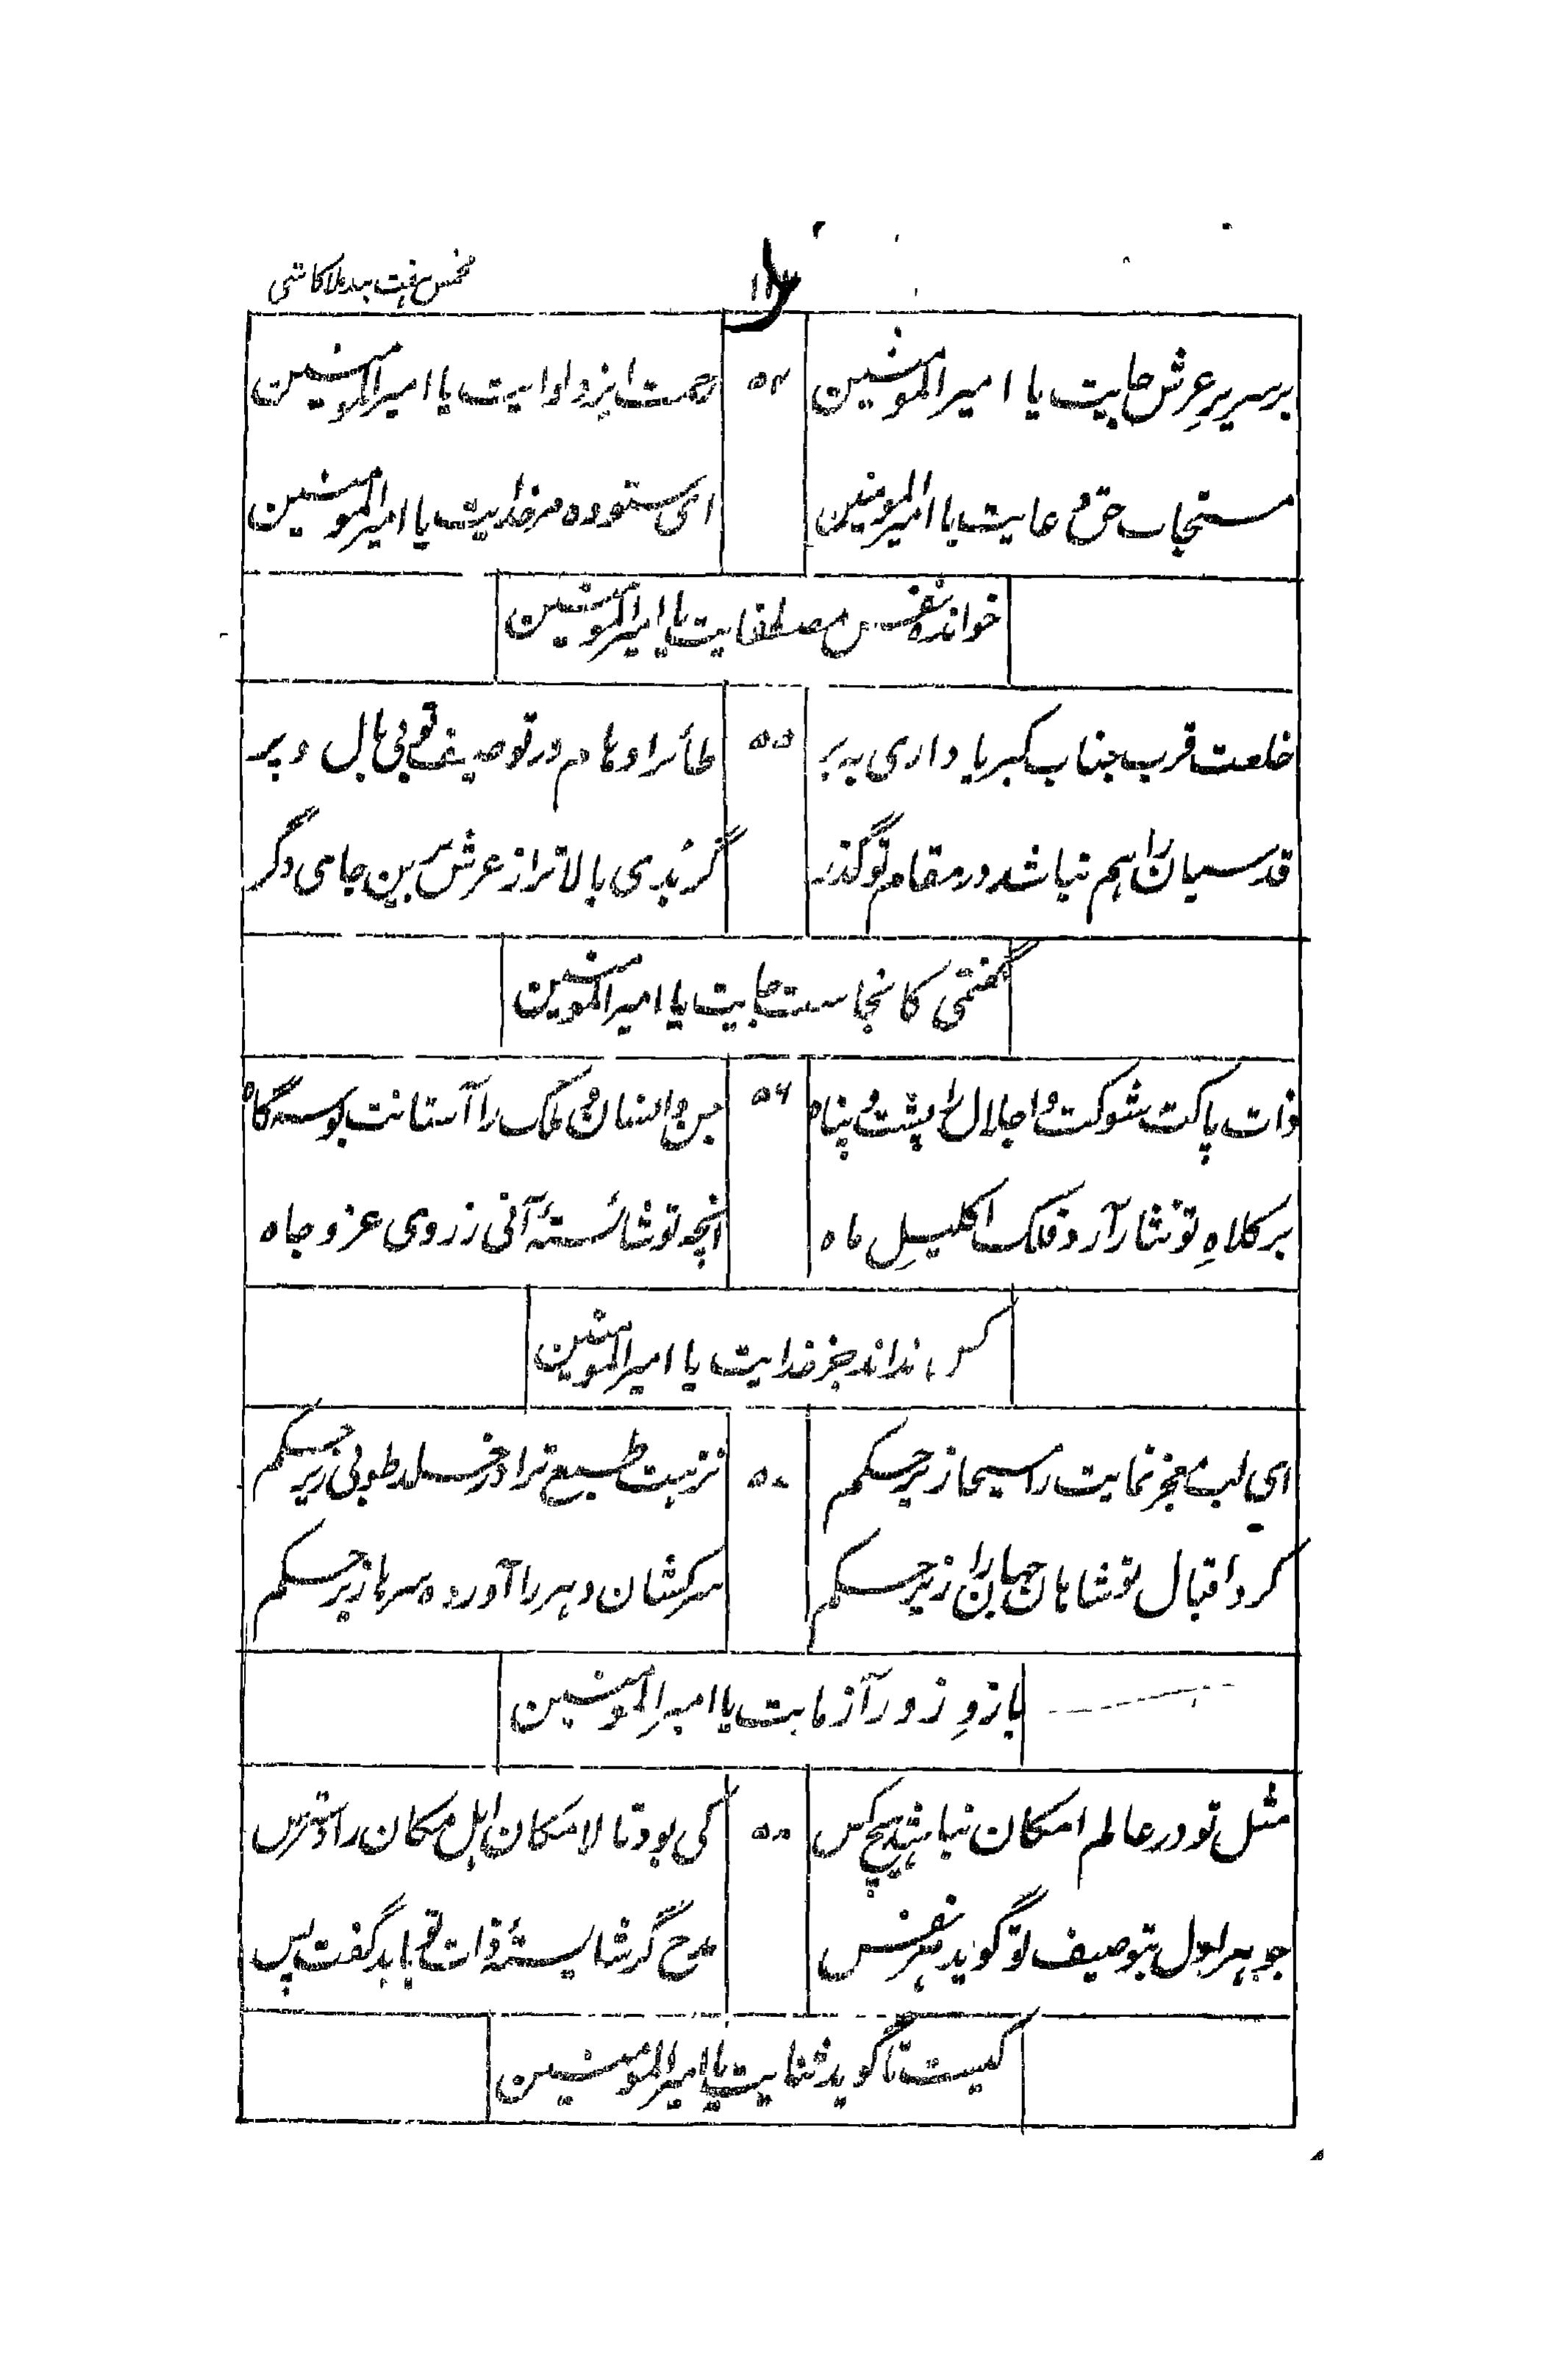 مخمس ہفت بند ملا کاشی
بر سریرِ عرش جایت یا امیرالمومنین ۵۴ رحمت ایزد لوایت یا امیرالمومنین
مستجاب حق دعایت یا امیرالمومنین ای ستوده مر خدایت یا امیرالمومنین
خوانده نفس مصطفایت یا امیرالمومنین
خلعت قرب جناب کبریا داری به بر ۵۵ طائر اوهام در توصیف تو بی بال و پر
قدسیان را هم نباشد در مقام تو گذر گر بدی بالاتر از عرش برین جای دگر
گفتمی کانجاست جایت یا امیرالمومنین
ذات پاکت شوکت و اجلال را پشت و پناه ۵۶ جن و انسان و ملک را آستانت بوسه گاه
بر کلاهِ تو نثار آرد فلک اکلیلِ ماه آنچه تو شائستهٔ آنی ز روی عز و جاه
کس نداند جز خدایت یا امیرالمومنین
ای لب معجز نمایت را مسیحا زیر حکم نزهت طبع ترا در خلد طوبی زیر حکم
کرد اقبال تو شاهان جهان را زیر حکم سرکشان دهر را آورده سرها زیر حکم
بازوِ زور آزمایت یا امیرِالمومنین
مثل تو در عالم امکان نباشد هیچ کس کی بود تا لامکان اهل مکان را دسترس
جوهر اول بتوصیف تو گوید هر نفس مدح گر شایستهٔ ذات تو باید گفت پس
کیست تا گوید ثنایت یا امیرالمومنین